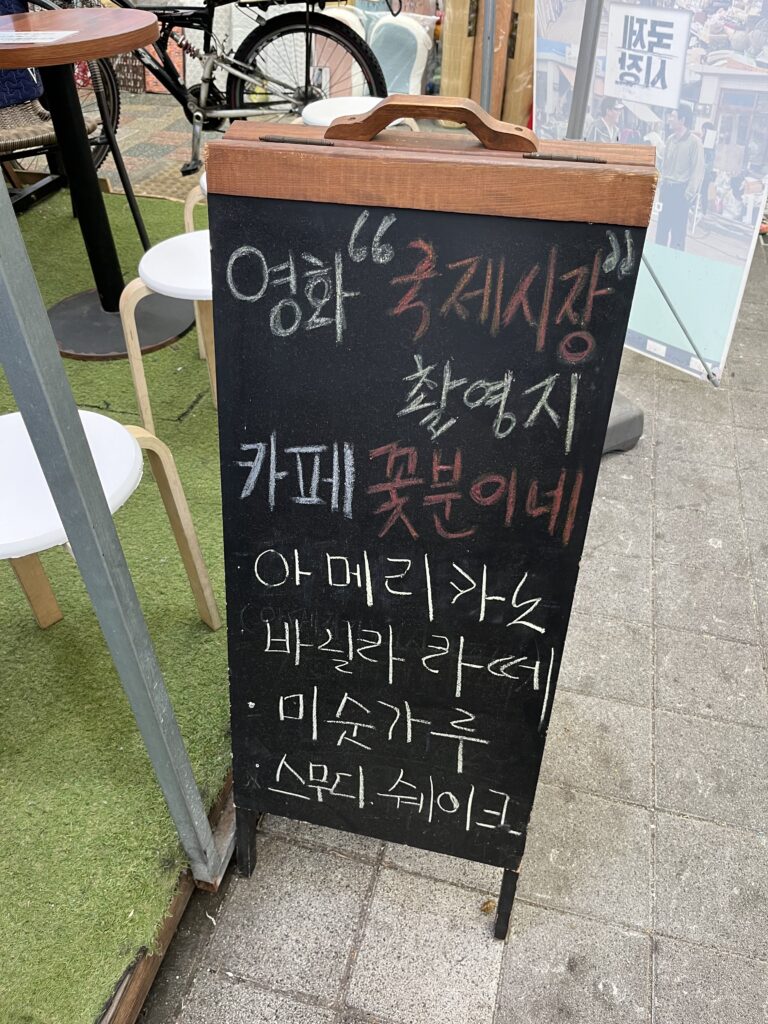 국제
시장
영화 “국제시장”
촬영지
카페 꽃분이네
아메리카노
바실라 라떼
· 미숫가루
· 스무디. 쉐이크